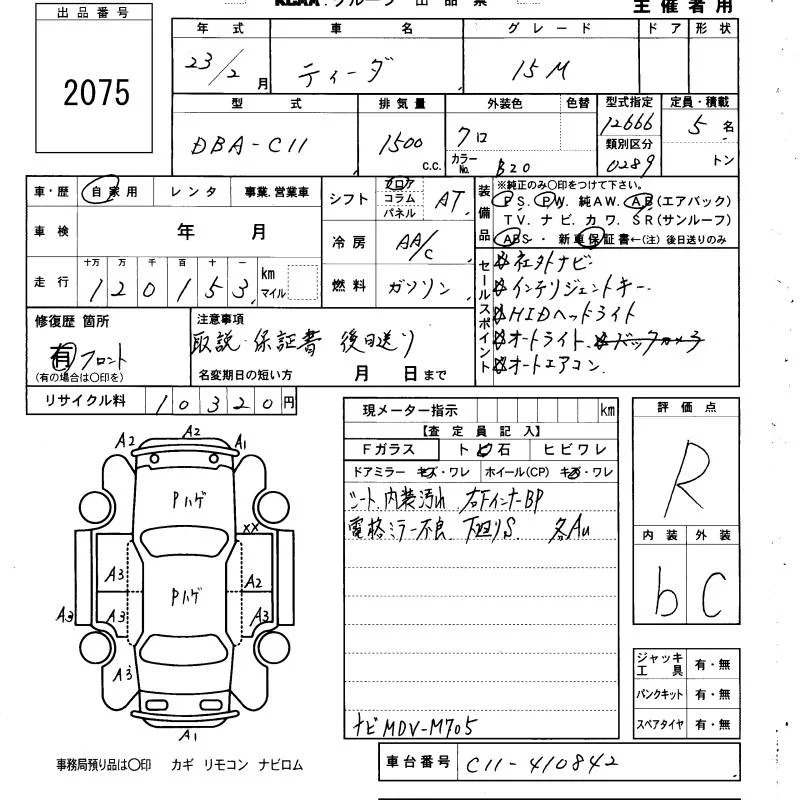 出品番号
2075
KCAA.グループ 出品票
主催者用
年式 車名 グレード ドア 形状
23/2月 ティーダ 15M
型式 排気量 外装色 色替 型式指定 定員・積載
DBA-C11 1500 C.C. クロ 12666 5名
カラーNo. B20 類別区分 0289 トン
車・歴 自家用 レンタ 事業.営業車
車検 年 月
走行 十万 万 千 百 十 一
120153 km マイル
シフト フロア コラム パネル AT
冷房 AA/C
燃料 ガソリン
装備品
※純正のみ〇印をつけて下さい。
PS. PW. 純AW. AB(エアバック)
TV. ナビ. カワ. SR(サンルーフ)
ABS・ 新車保証書←(注) 後日送りのみ
セールスポイント
☆社外ナビ
☆インテリジェントキー
☆HIDヘッドライト
☆オートライト ☆バックカメラ
☆オートエアコン
修復歴 箇所
有 フロント
(有の場合は〇印を)
注意事項
取説・保証書 後日送り
名変期日の短い方 月 日まで
リサイクル料 10320円
現メーター指示 km
【査定員記入】
Fガラス ト ビ 石 ヒビワレ
ドアミラー キズ・ワレ ホイール(CP) キズ・ワレ
シート、内装汚れ 右FインナーBP
電格ミラー不良 下廻りS 各AU
ナビMDV-M705
評価点
R
内装 外装
b C
ジャッキ工具 有・無
パンクキット 有・無
スペアタイヤ 有・無
A2 A2 A1
Pハゲ
XX
A3 A2
Pハゲ
A3 A3 A3 A3
A3
A1
事務局預り品は〇印 カギ リモコン ナビロム
車台番号 C11-410842